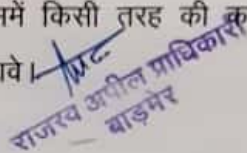 नमें किसी तरह की
ावे।
राजस्व अपील प्राधिकारी
बाड़मेर